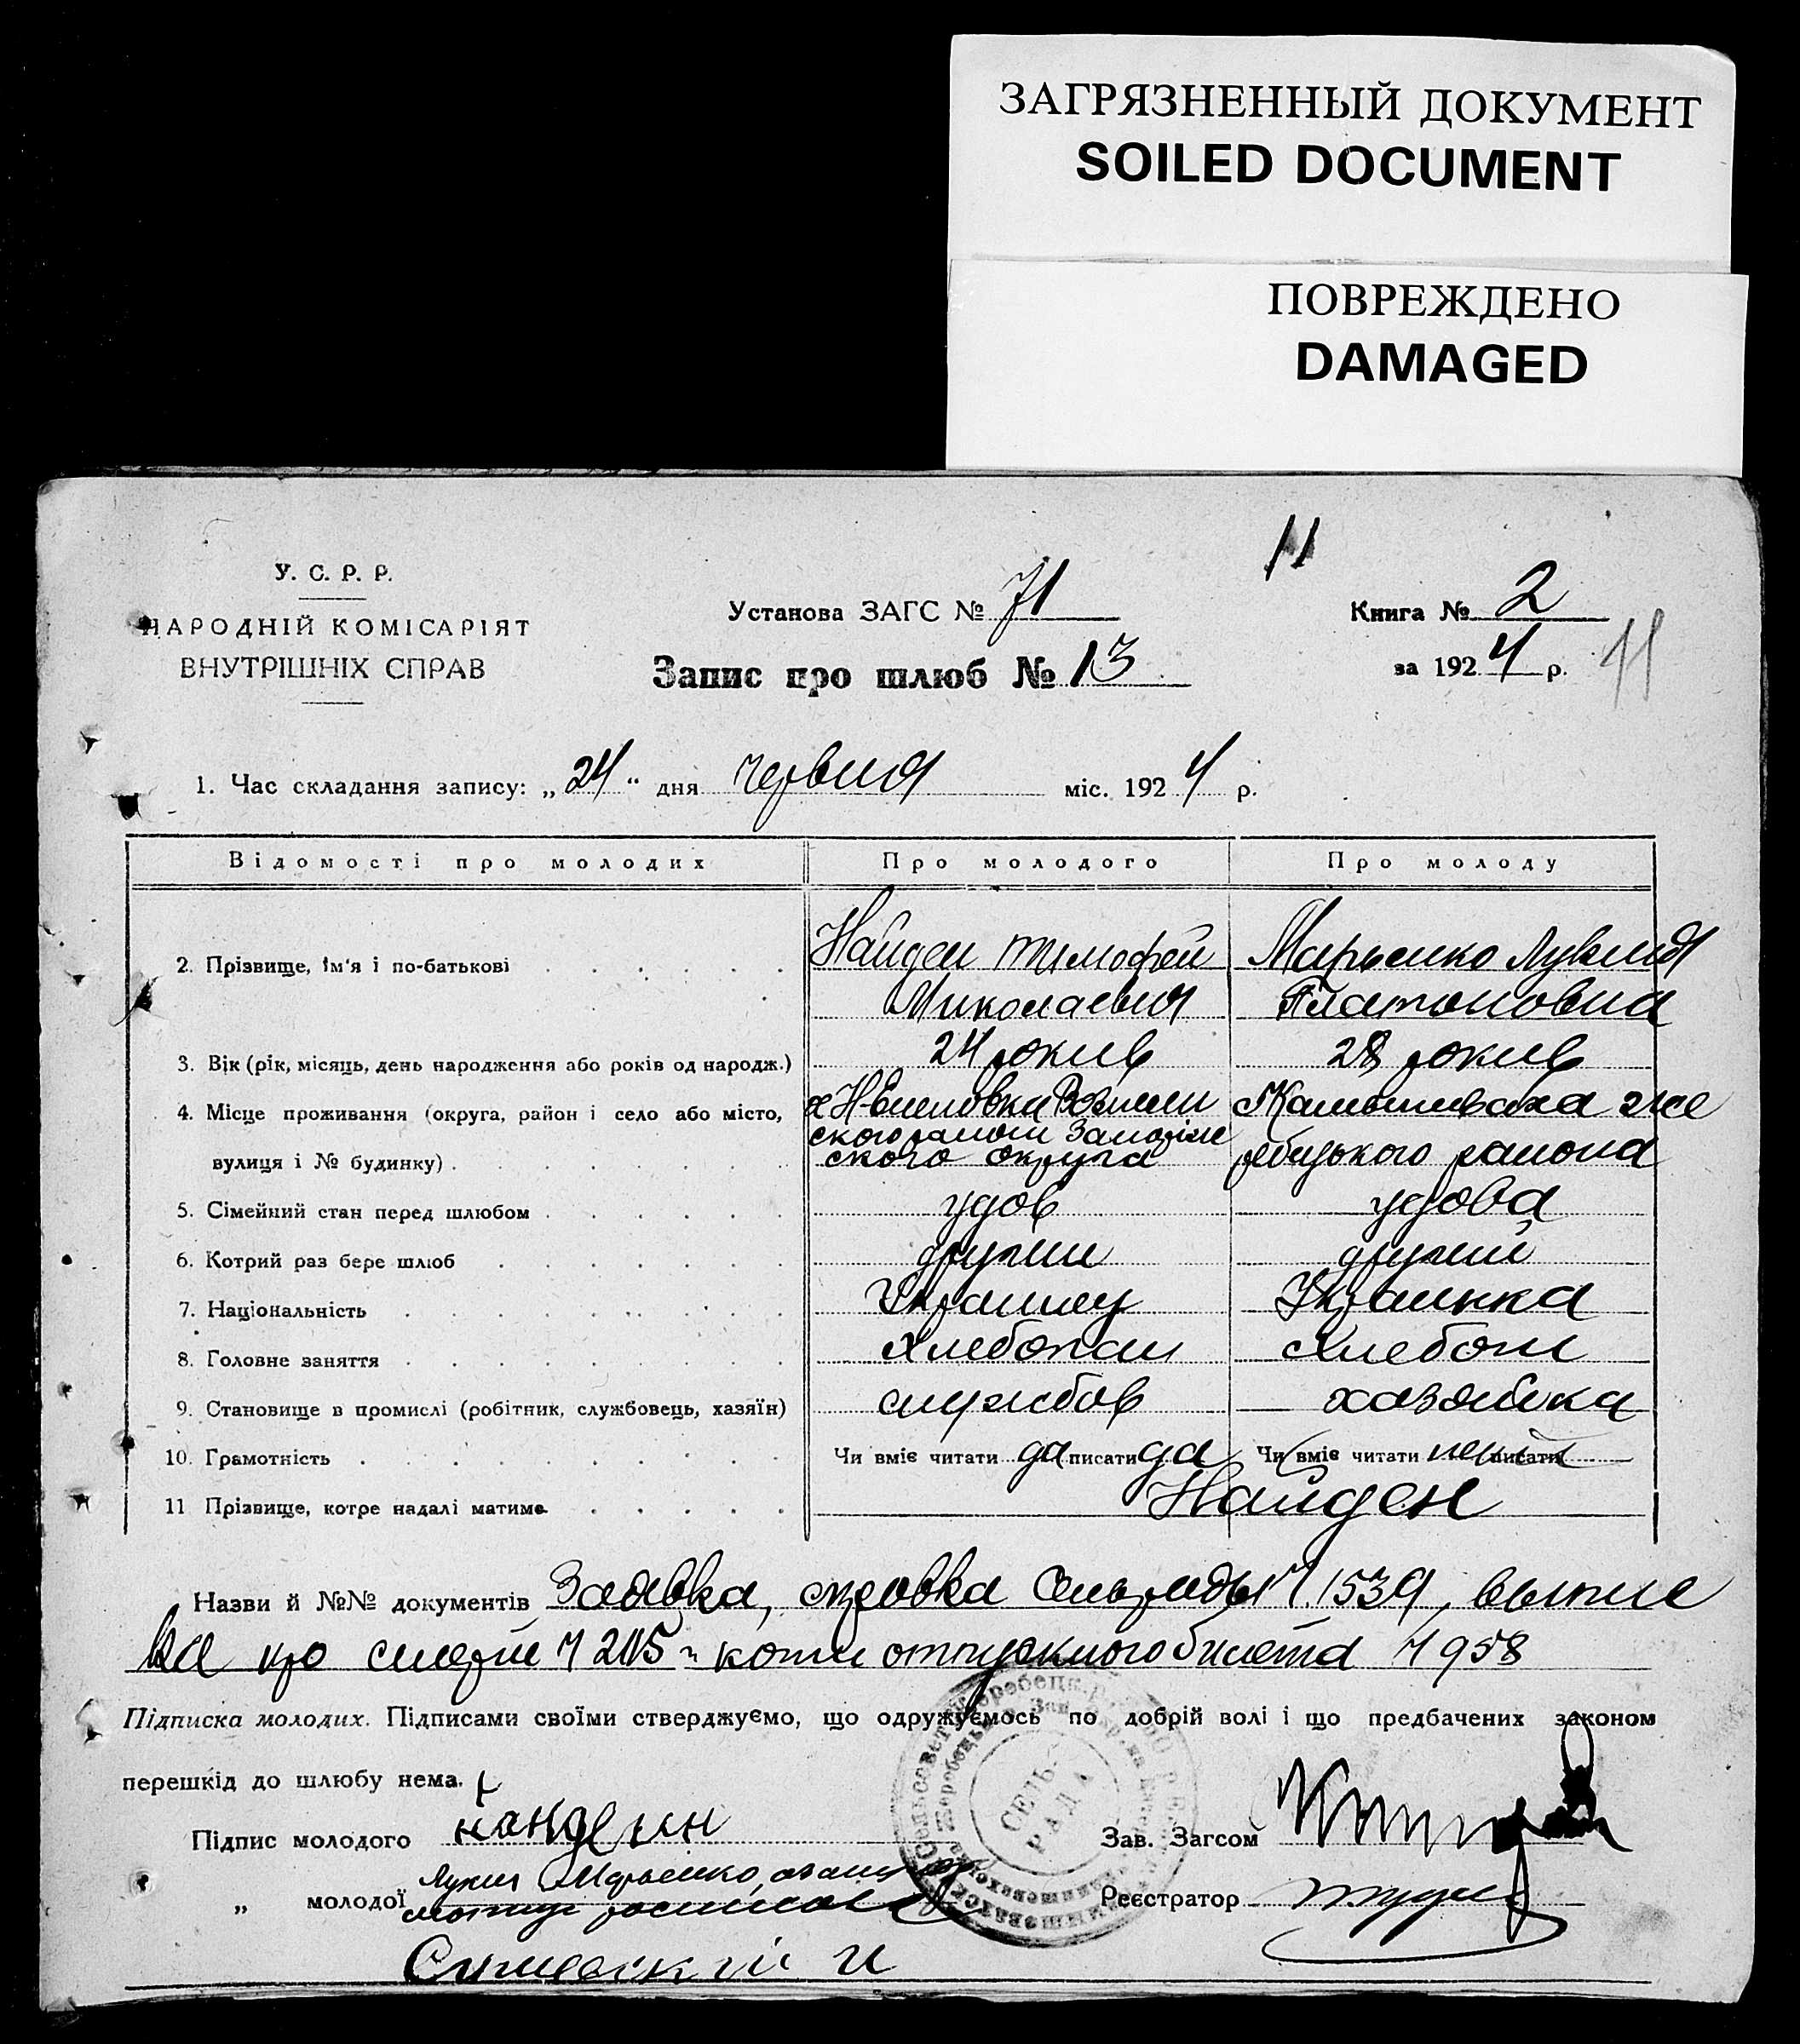 ЗАГРЯЗНЕННЫЙ ДОКУМЕНТ
SOILED DOCUMENT
ПОВРЕЖДЕНО
DAMAGED
11
У. С. Р. Р.
НАРОДНІЙ КОМІСАРІЯТ
ВНУТРІШНІХ СПРАВ
Установа ЗАГС № 71
Книга № 2
Запис про шлюб № 13
за 1924 р. 11
1. Час складання запису: „24" дня червня міс. 1924 р.
Відомості про молодих Про молодого Про молоду
2. Прізвище, ім'я і по-батькові Найден Тимофей Марьенко Лукия
Миколаевич Платоновна
3. Вік (рік, місяць, день народження або років од народж.) 24 рокив 28 рокив
4. Місце проживання (округа, район і село або місто, Камышеваха Же
ского Запоріж
вулиця і № будинку) ского округа ребецького района
5. Сімейний стан перед шлюбом удов удова
6. Котрий раз бере шлюб другий другий
7. Національність Українец Українка
8. Головне заняття Хлебопаш Хлебопаш
9. Становище в промислі (робітник, службовець, хазяїн) службов хазяйка
10. Грамотність Чи вміє читати да писати да Чи вміє читати писати
11 Прізвище, котре надалі матиме Найден
Назви й №№ документів Заявка, справка Сельрады № 1539, выпис
ка про смерть № 2115 и копии отпускного билета № 958
Підписка молодих. Підписами своїми стверджуємо, що одружуємось по добрій волі і що предбачених законом
перешкід до шлюбу нема.
СЕЛЬ-
РАДА
Підпис молодого
Зав. Загсом
„ молодої Лукия Марьенко, а за неи
Реєстратор